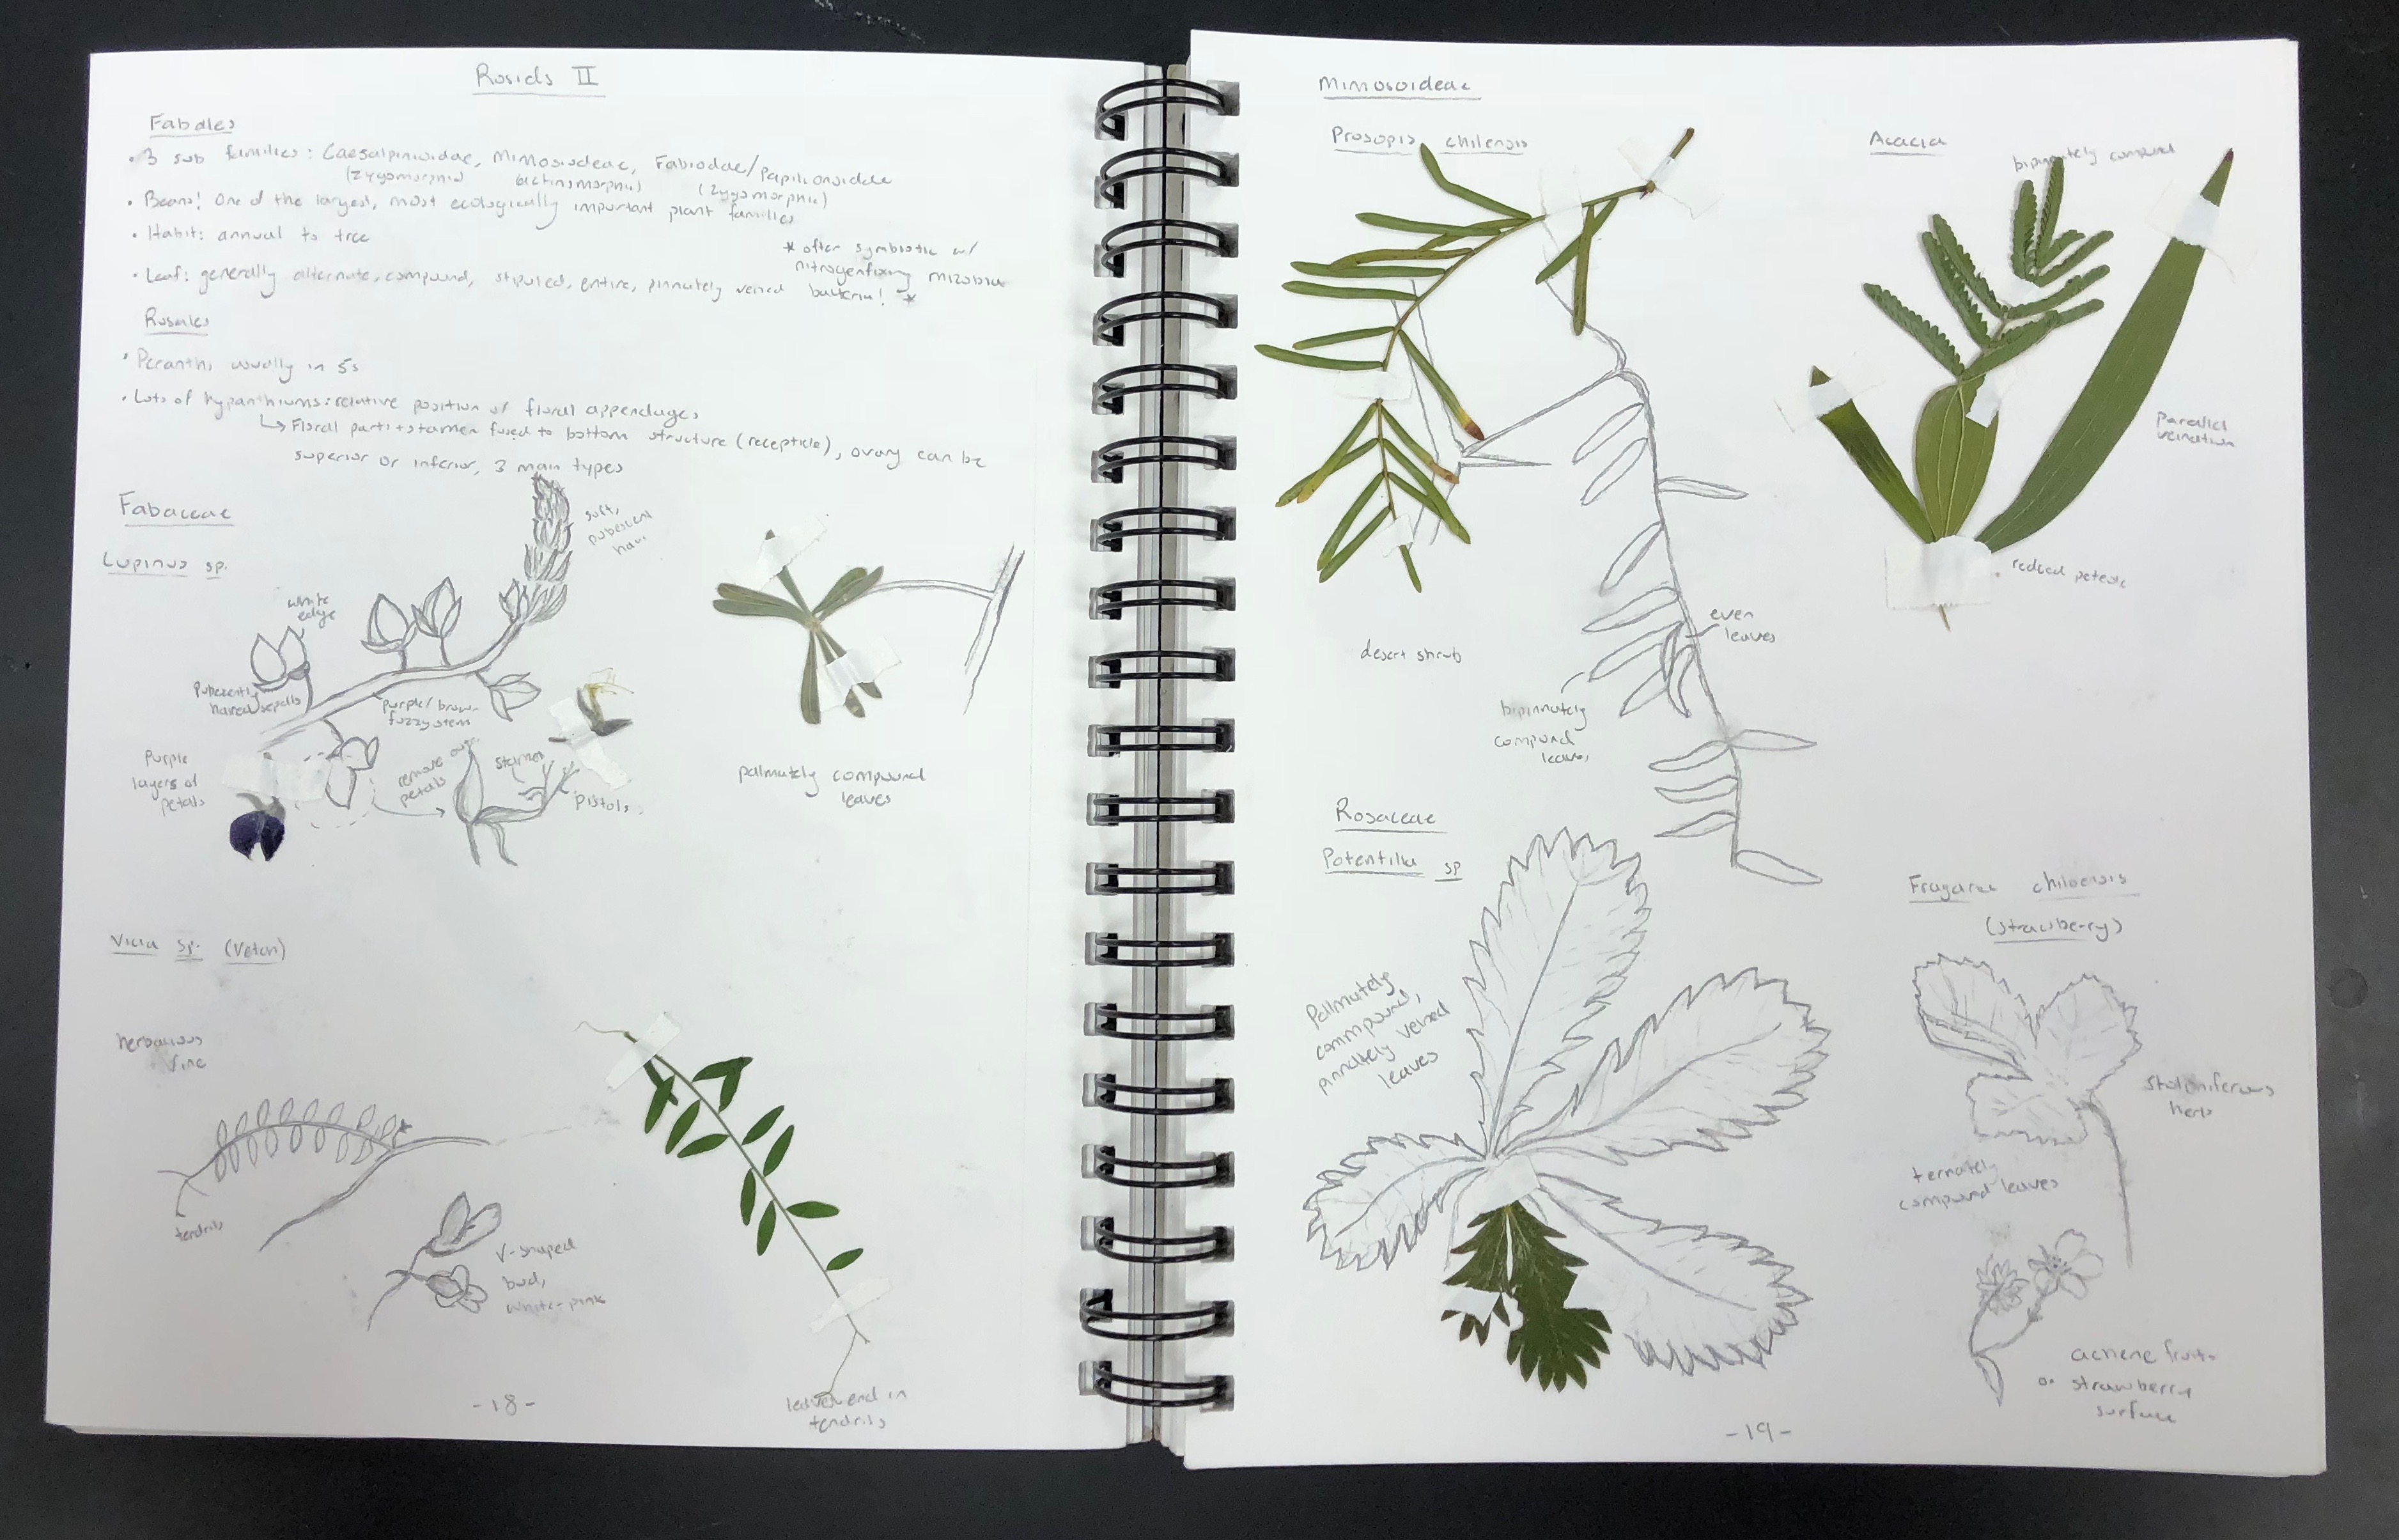 Rosids II
Fabales
• 3 sub families: Caesalpinioidae, Mimosiodeae, Fabiodae/Papilionoidae
(zygomorphic) (actinomorphic) (zygomorphic)
• Beans! One of the largest, most ecologically important plant families
• Habit: annual to tree
* often symbiotic w/
nitrogenfixing rhizobia
bacteria! *
• Leaf: generally alternate, compound, stipuled, entire, pinnately veined
Rosales
• Peranth, usually in 5s
• Lots of hypanthiums: relative position of floral appendages
↳ Floral parts + stamen fused to bottom structure (recepticle), ovary can be
superior or inferior, 3 main types
Fabaceae
Lupinus sp.
soft,
pubescent
hair
white
edge
haired sepals
purple/brown
fuzzy stem
Purple
layers of
petals
remove outer
petals
stamen
pistols
pallmately compound
leaves
Vicia sp. (Vetch)
herbacious
vine
tendrils
V-shaped
bud,
white-pink
leaves end in
tendrils
-18-
Mimosoideae
Prosopis chilensis
desert shrub
even
leaves
bipinnately
compound
leaves
Acacia
bipinnately compound
Parallel
veination
reduced petiole
Rosaceae
Potentilla sp
Pallmately
commpound,
pinnately veined
leaves
Fragaria chiloensis
(strawberry)
stoloniferous
herb
ternately
compound leaves
achene fruits
on strawberry
surface
-19-